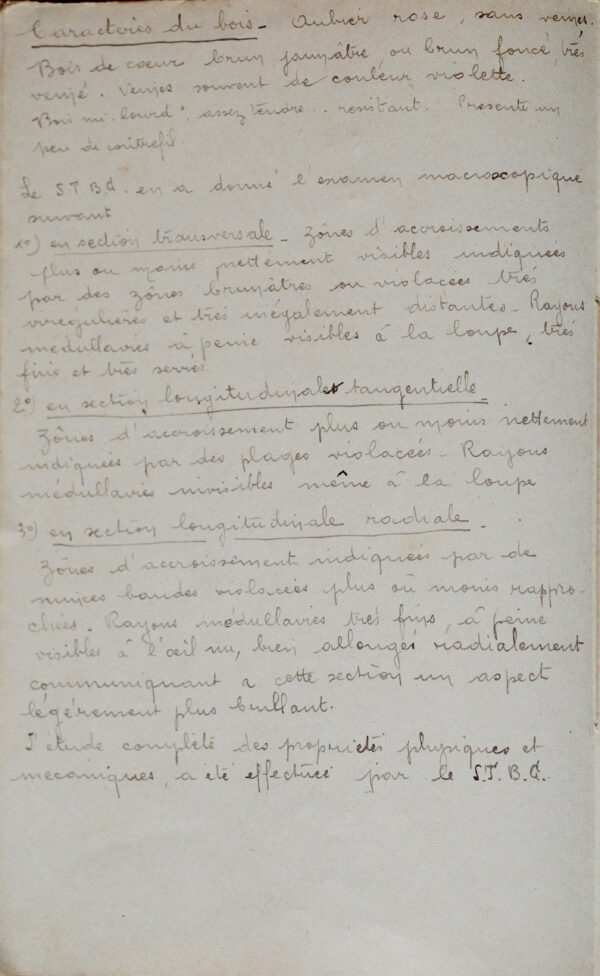 Caractères du bois - Aubier rose, sans veines.
Bois de cœur brun jaunâtre, ou brun foncé, très
veiné. Veines souvent de couleur violette.
Bois mi-lourd, assez tendre, résistant. Présente un
peu de contrefil.
Le S.T.B.C. en a donné l'examen macroscopique
suivant
1º) en section transversale - Zônes d'accroissements
plus ou moins nettement visibles indiquées
par des zônes brunâtres ou violacées très
irrégulières et très inégalement distantes - Rayons
médullaires à peine visibles à la loupe, très
fins et très serrés
2º) en section longitudinale tangentielle
Zônes d'accroissement plus ou moins nettement
indiquées par des plages violacées - Rayons
médullaires invisibles même à la loupe
3º) en section longitudinale radiale.
Zônes d'accroissement indiquées par de
minces bandes violacées plus ou moins rappro-
chées. Rayons médullaires très fins, à peine
visibles à l'œil nu, bien allongés radialement
communiquant a cette section un aspect
légèrement plus brillant.
L'étude complète des propriétés physiques et
mécaniques, a été effectuée par le S.T.B.C.